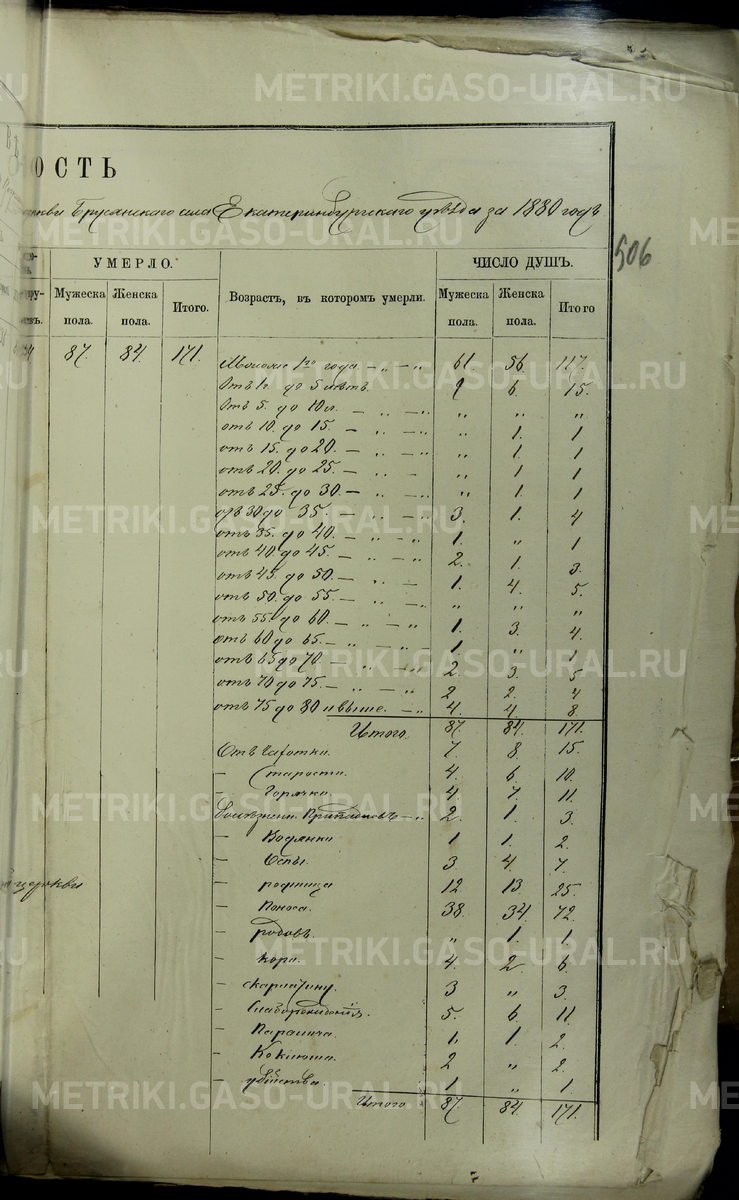 METRIKI.GASO-URAL.RU
ОСТЬ
Брусянскаго села Екатеринбургскаго уѣзда за 1880 годъ
506
УМЕРЛО.
ЧИСЛО ДУШЪ.
Мужеска пола. Женска пола. Итого. Возрастъ, въ которомъ умерли. Мужеска пола. Женска пола. Итого
87. 84. 171. 1го года – „ – „ 61. 56. 117.
Отъ 1г. до 5 лѣтъ. 9 6. 15.
Отъ 5. до 10л. – „ – „ „ „ „
отъ 10. до 15. – „ – „ „ 1. 1
отъ 15. до 20. – „ – „ „ 1. 1.
отъ 20. до 25. – „ – „ 1 1
отъ 25. до 30. – „ – „ „ 1. 1.
отъ 30 до 35. – „ – „ 3. 1. 4
отъ 35. до 40. – „ – „ 1. „ 1
отъ 40. до 45. – „ – „ 2. 1. 3.
отъ 45. до 50. – „ – 1. 4. 5.
отъ 50. до 55. – „ – „ „ „ „
отъ 55. до 60. – „ – „ 1. 3. 4.
отъ 60 до 65. – „ – „ 1. „ 1
отъ 65 до 70. – „ – „ 2. 3. 5
отъ 70 до 75. – „ – „ 2 2. 4
отъ 75 до 80 и выше. – „ 4. 4. 8
Итого. 87. 84. 171.
Отъ Чахотки. 7 8. 15.
– Старости. 4. 6. 10.
– Горячки. 4 7. 11.
– „ 2. 1. 3.
– Водянки 1 1. 2.
– Оспы. 3. 4. 7.
– родимца 12 13. 25
– Поноса. 38. 34. 72.
– родовъ. „ 1. 1.
– кори. 4. 2. 6.
– скарлатину. 3 „ 3.
– 5. 6. 11
– Паралича. 1. 1. 2.
– Коклюша. 2 „ 2.
– убійства. 1 „ 1.
Итого 87. 84. 171.
церкви